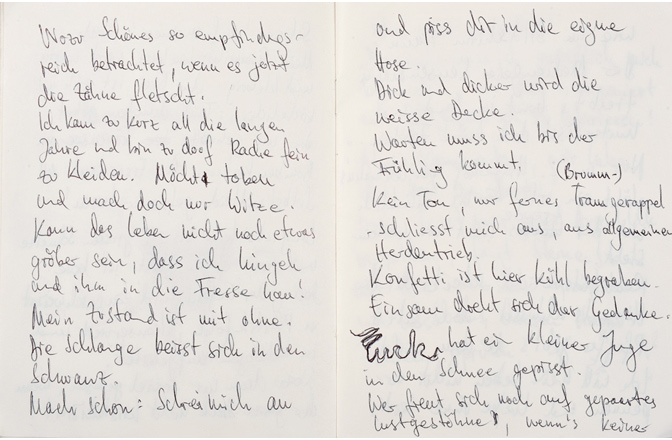 Wozu Schönes so empfindungs-
reich betrachtet, wenn es jetzt
die Zähne fletscht.
Ich kam zu kurz all die langen
Jahre und bin zu doof Rache fein
zu kleiden. Möcht toben
und mach doch nur Witze.
Kann das Leben nicht noch etwas
gröber sein, dass ich hingeh
und ihm in die Fresse hau!
Mein Zustand ist mit ohne.
Die Schlange beisst sich in den
Schwanz.
Mach schon: Schrei mich an
und piss dir in die eigne
Hose.
Dick und dicker wird die
weisse Decke.
Warten muss ich bis der
Frühling kommt.
(Brumm-)
Kein Ton, nur fernes Tramgerappel
-schliesst mich aus, aus allgemeinem
Herdentrieb.
Konfetti ist hier kühl begraben.
Einsam dreht sich der Gedanke.
hat ein kleiner Junge
in den Schnee gepisst.
Wer freut sich noch auf gepaartes
Lustgestöhne, wenn's keiner